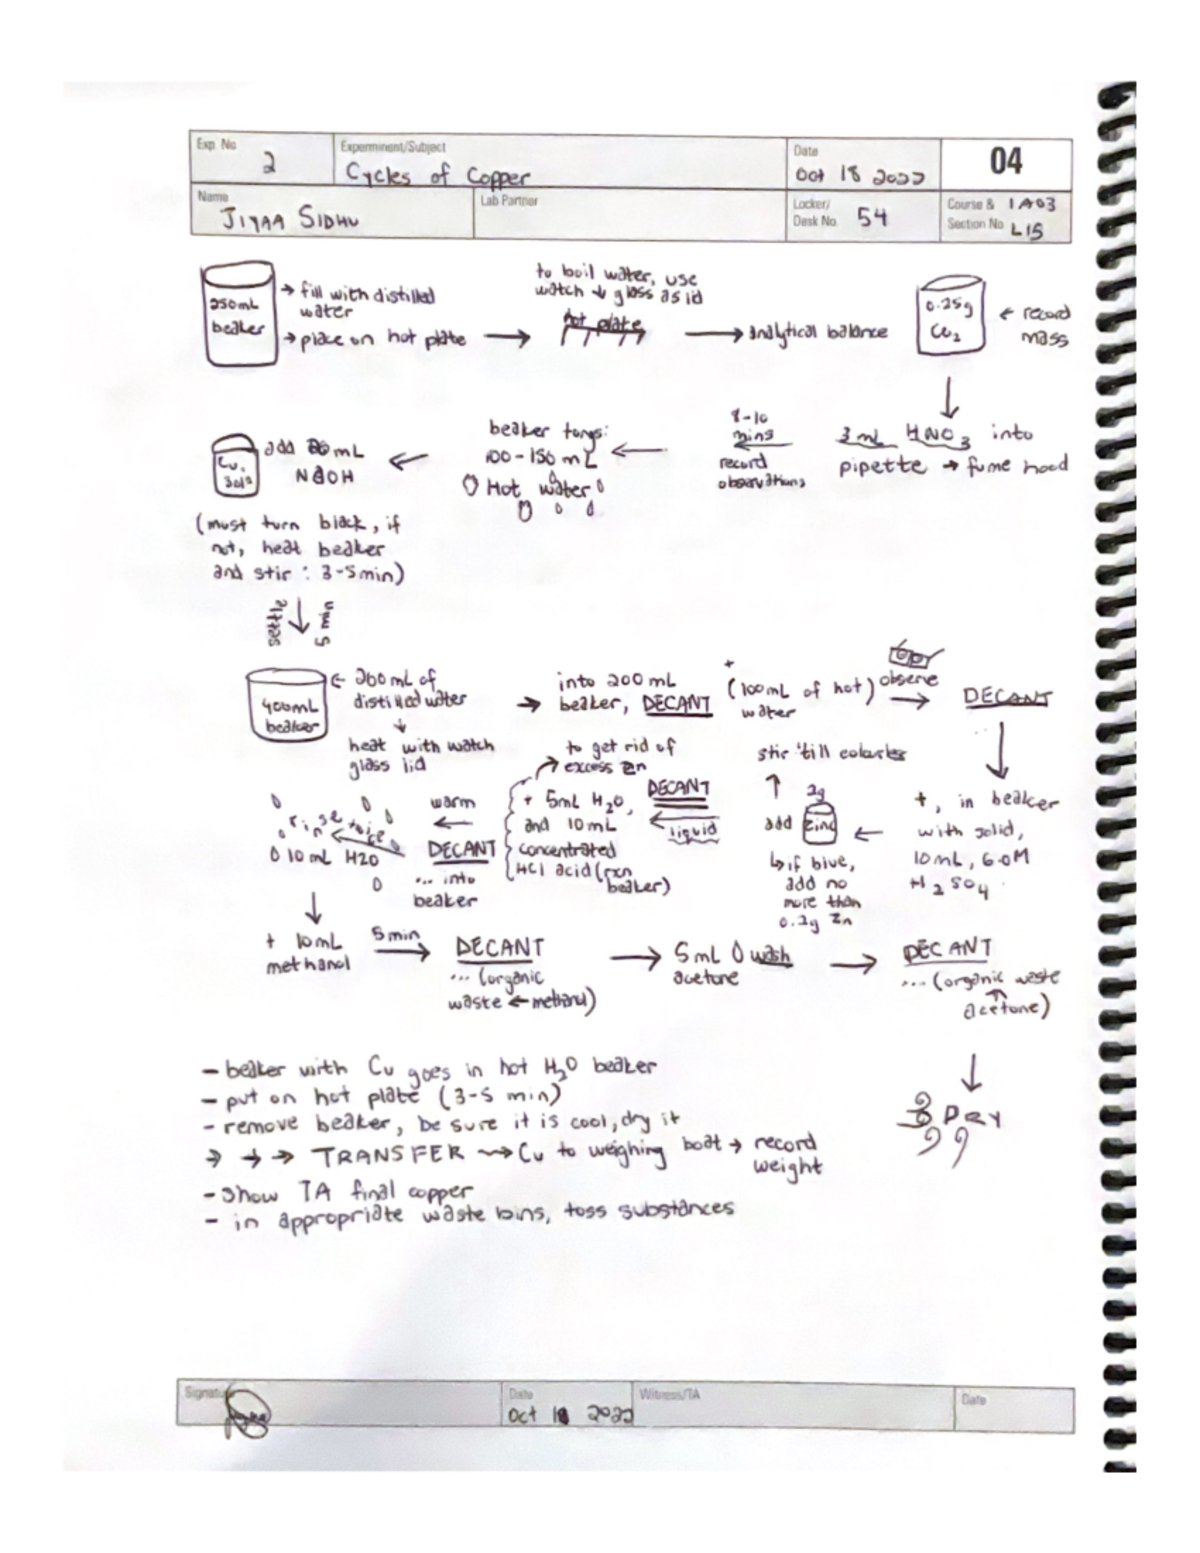 Exp. No
2
Experiment/Subject
Cycles of Copper
Date
Oct 18 2022
04
Name
JIYAA SIDHU
Lab Partner
Locker/
Desk No.
54
Course & 1A03
Section No. L15
250mL
beaker
→ fill with distilled
water
→ place on hot plate →
to boil water, use
watch ↓ glass as lid
hot plate
→ analytical balance
0.25g
Cu2
← record
mass
↓
3 mL HNO3 into
pipette → fume hood
8-10
mins
←
record
observations
←
beaker tongs:
100-150 mL
Hot water
←
add 20mL
NaOH
Cu,
(must turn black, if
not, heat beaker
and stir: 3-5min)
settle ↓ 5 min
400mL
beaker
← 200mL of
distilled water
↓
heat with watch
glass lid
→ into 200 mL
beaker, DECANT
+
(100mL of hot)
water
observe
→
DECANT
↓
+, in beaker
with solid,
10mL, 6.0M
H2SO4
←
2g
add zinc
↑
stir 'till colorless
↳ if blue,
add no
more than
0.2g Zn
DECANT
←
liquid
→ to get rid of
excess Zn
+ 5mL H2O,
and 10mL
concentrated
HCl acid (rxn
beaker)
warm
←
DECANT
... into
beaker
rinse twice
10 mL H2O
↓
+ 10mL
methanol
5 min
→
DECANT
... (organic
waste ← methanol)
→ 5mL wash
acetone
→ DECANT
... (organic waste
↑
acetone)
↓
DRY
- beaker with Cu goes in hot H2O beaker
- put on hot plate (3-5 min)
- remove beaker, be sure it is cool, dry it
→ → → TRANSFER → Cu to weighing boat → record
weight
- show TA final copper
- in appropriate waste bins, toss substances
Signature
Date
Oct 18 2022
Witness/TA
Date